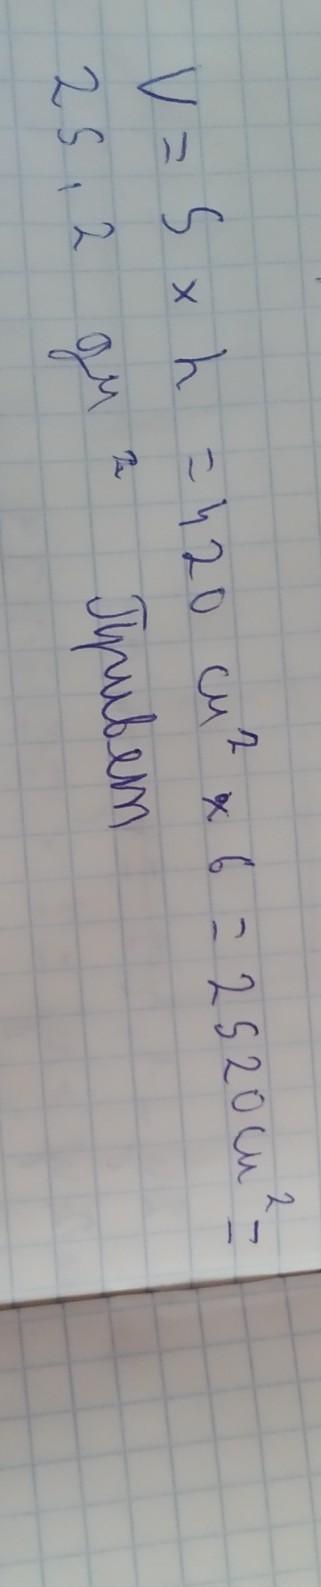 V = S × h = 420 см² × 6 = 2520 см² =
25,2 дм² Привет